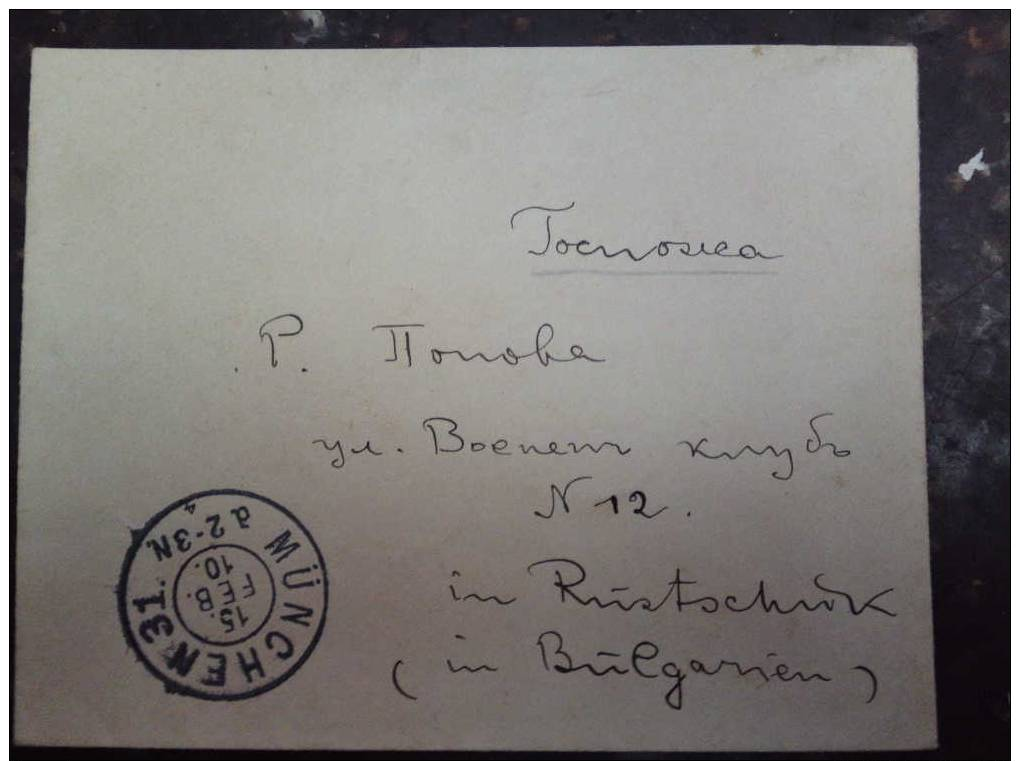 Госпожа
Р. Попова
ул. Воененъ клубъ
N 12.
in Rustschuk
(in Bulgarien)
MÜNCHEN 31.
15. FEB. 10.
2-3N